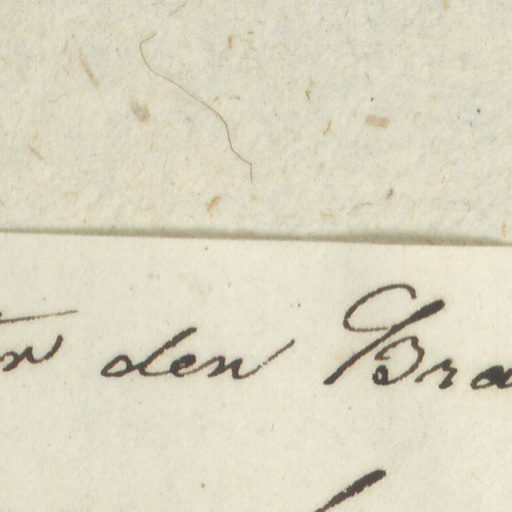 den Bra